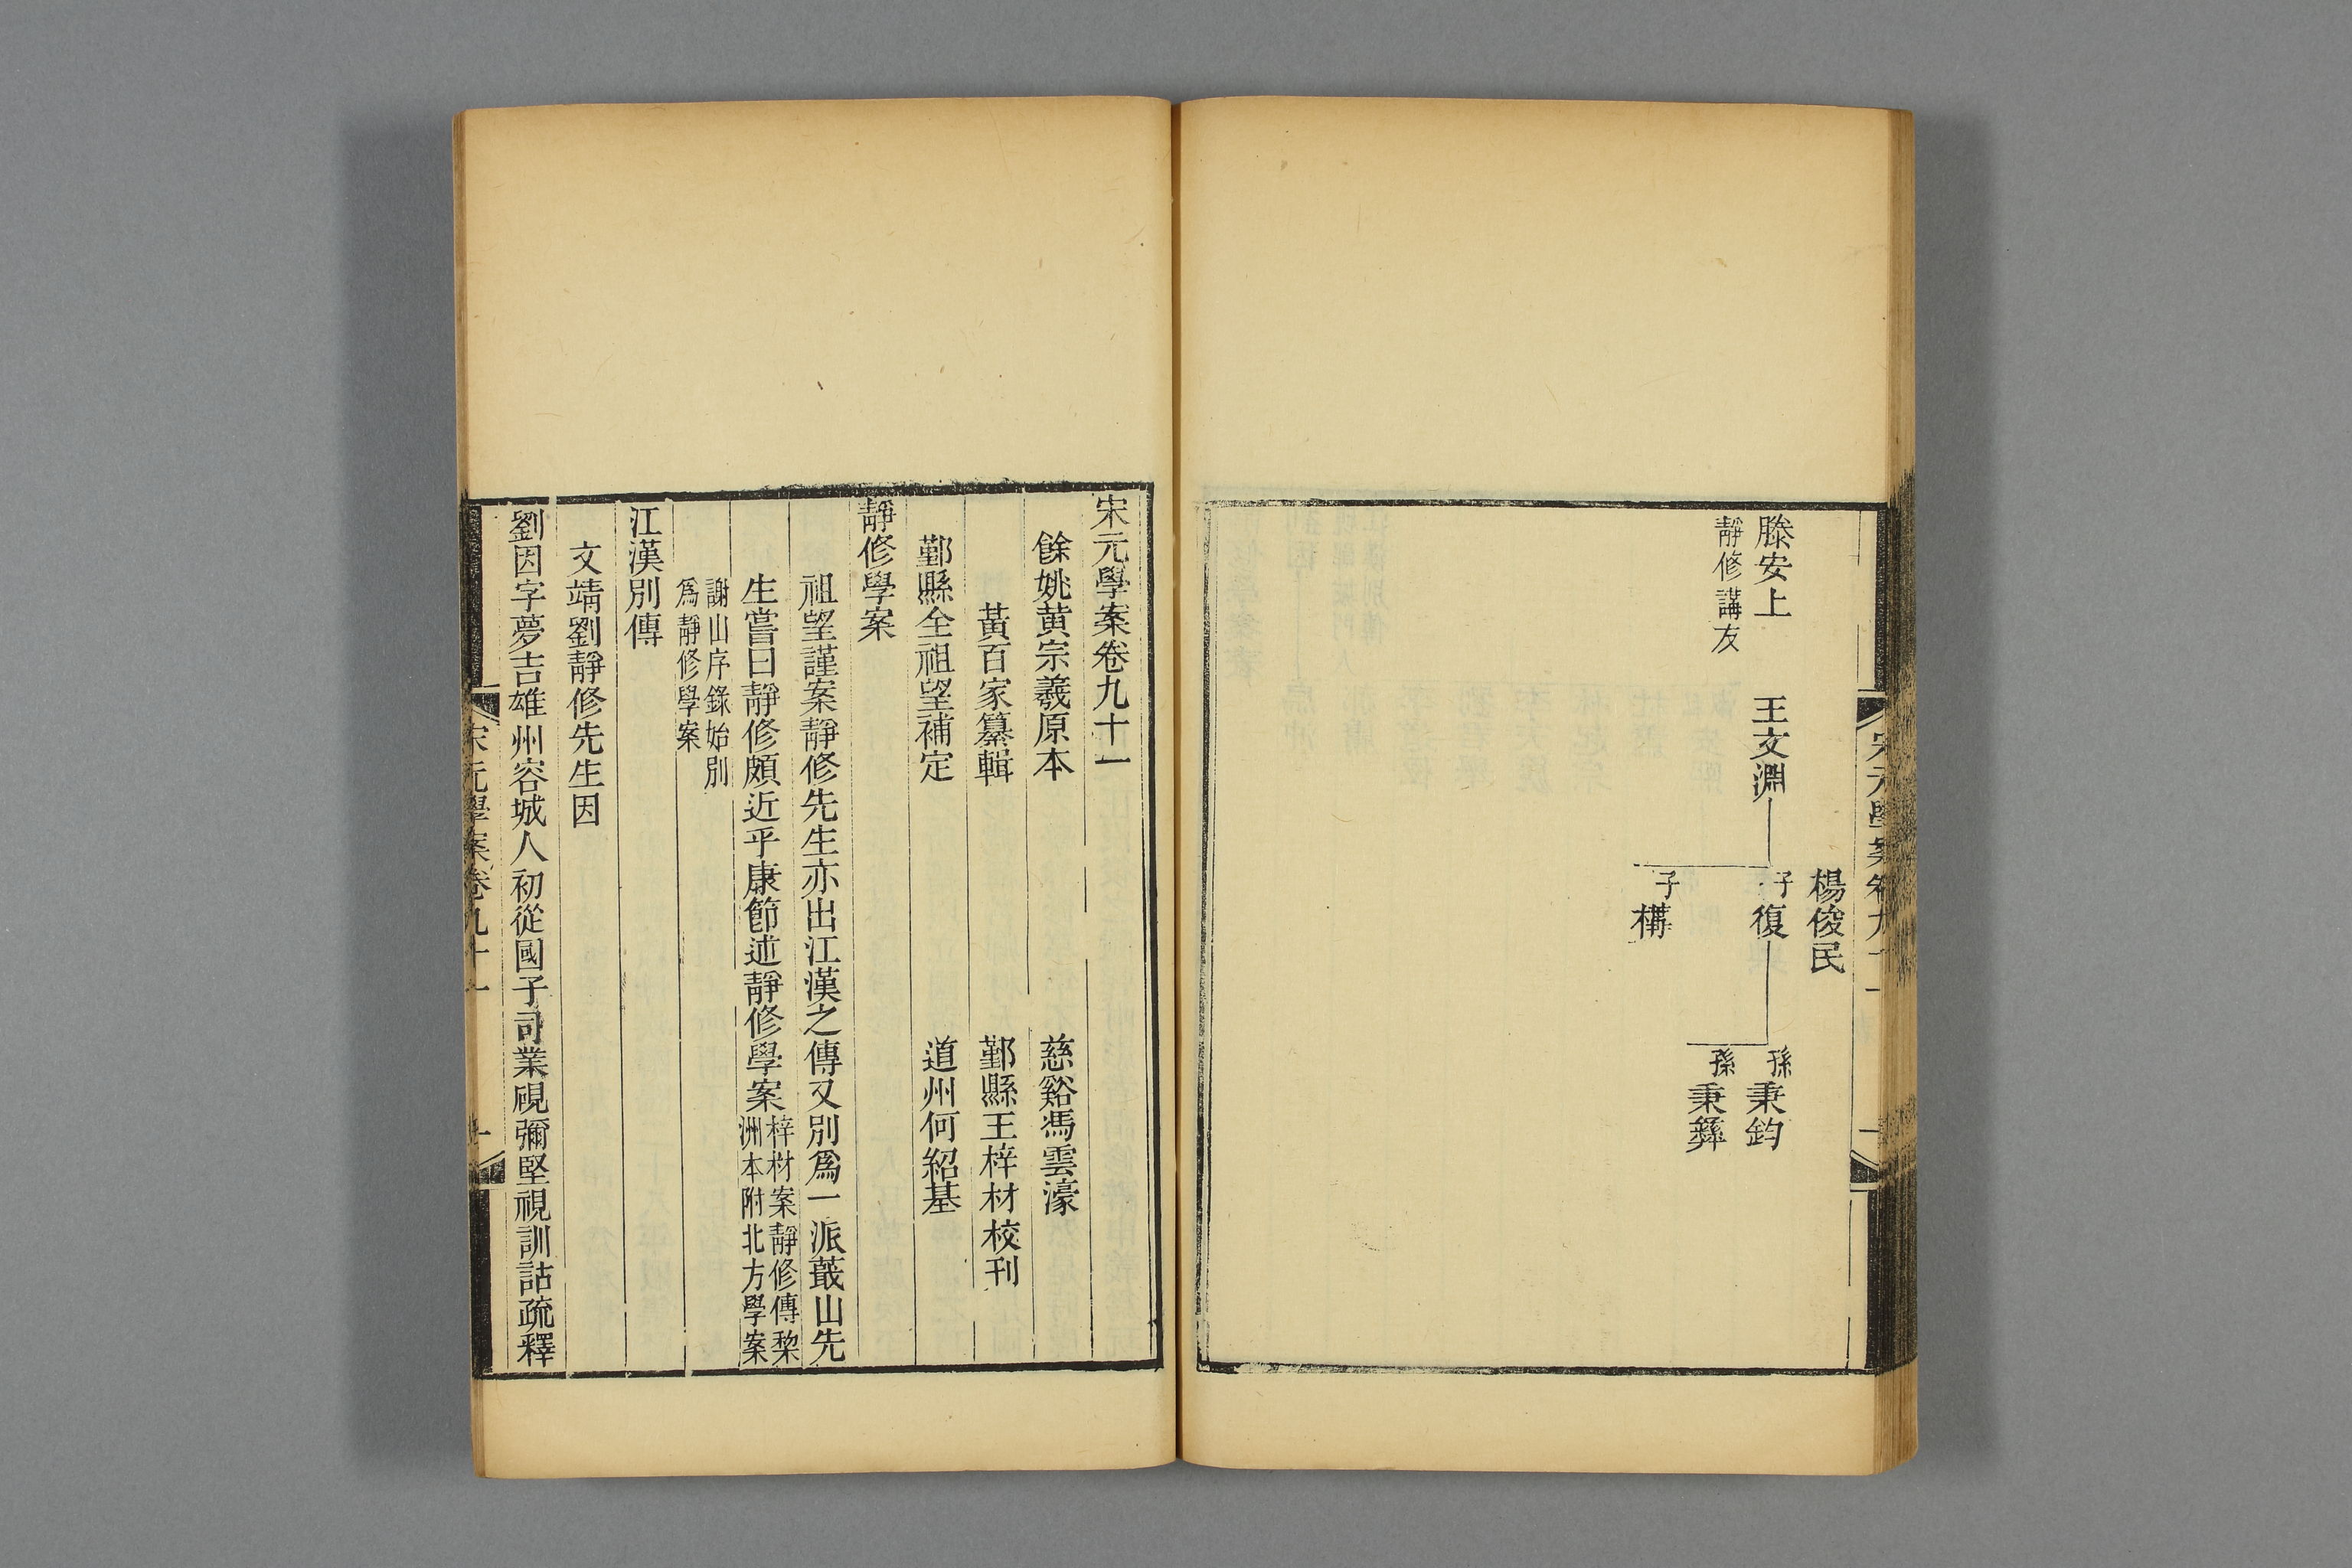 宋元學案卷九十一
楊俊民
滕安上
靜修講友
王文淵
子復
孫秉鈞
孫秉彝
子構
宋元學案卷九十一
餘姚黃宗羲原本
慈谿馮雲濠
黃百家纂輯
鄞縣王梓材校刊
鄞縣全祖望補定
道州何紹基
靜修學案
祖望謹案靜修先生亦出江漢之傳又別爲一派蕺山先
生嘗曰靜修頗近乎康節述靜修學案
梓材案靜修傳棃
洲本附北方學案
謝山序錄始別
爲靜修學案
江漢別傳
文靖劉靜修先生因
劉因字夢吉雄州容城人初從國子司業硯彌堅視訓詁疏釋
宋元學案卷九十一
一